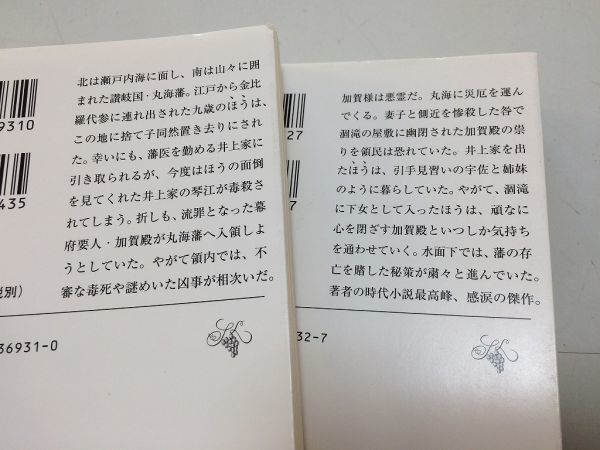 北は瀬戸内海に面し、南は山々に囲
まれた讃岐国・丸海藩。江戸から金比
羅代参に連れ出された九歳のほうは、
この地に捨て子同然置き去りにされ
た。幸いにも、藩医を勤める井上家に
引き取られるが、今度はほうの面倒
を見てくれた井上家の琴江が毒殺さ
れてしまう。折しも、流罪となった幕
府要人・加賀殿が丸海藩へ入領しよ
うとしていた。やがて領内では、不
審な毒死や謎めいた凶事が相次いだ。
9310
435
税別)
36931-0
加賀様は悪霊だ。丸海に災厄を運ん
でくる。妻子と側近を惨殺した咎で
涸滝の屋敷に幽閉された加賀殿の祟
りを領民は恐れていた。井上家を出
たほうは、引手見習いの宇佐と姉妹
のように暮らしていた。やがて、涸滝
に下女として入ったほうは、頑なに
心を閉ざす加賀殿といつしか気持ち
を通わせていく。水面下では、藩の存
亡を賭した秘策が粛々と進んでいた。
著者の時代小説最高峰、感涙の傑作。
27
7
32-7